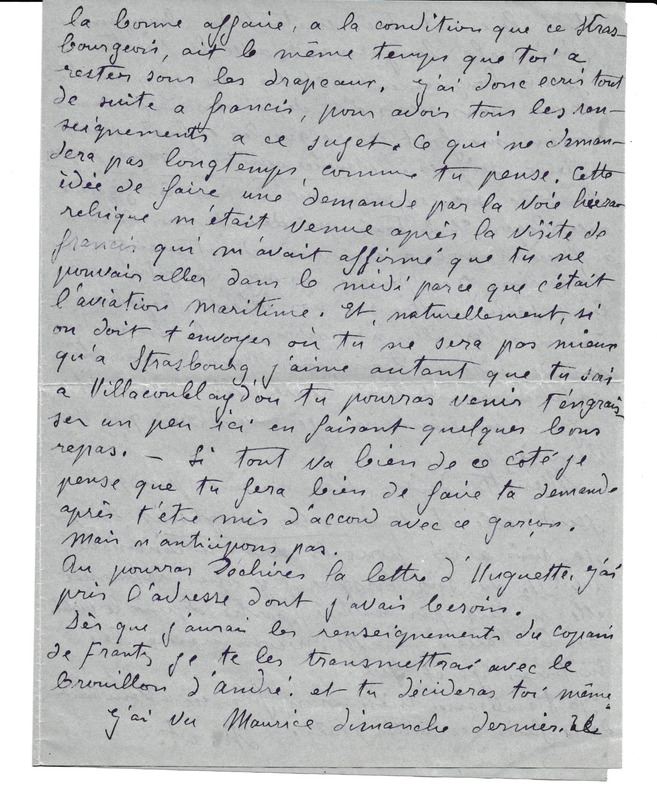 la bonne affaire, a la condition que ce Stras-
bourgeois, ait le même temps que toi a
rester sous les drapeaux. j'ai donc ecris tout
de suite a francis, pour avoir tous les ren-
seignements a ce sujet. Ce qui ne deman-
dera pas longtemps, comme tu pense. Cette
idée de faire une demande par la voie hiérar
rchique m'était venue après la visite de
francis qui m'avait affirmé que tu ne
pouvais aller dans le midi parce que c'était
l'aviation maritime. Et, naturellement, si
on doit t'envoyer où tu ne sera pas mieux
qu'a Strasbourg j'aime autant que tu
a Villacoublay d'où tu pourras venir t'engrais-
ser un peu ici en faisant quelques bons
repas. — Si tout va bien de ce côté je
pense que tu fera bien de faire ta demande
après t'être mis d'accord avec ce garçon.
Mais n'anticipons pas.
Tu pourras déchirer la lettre d'Huguette, j'ai
pris l'adresse dont j'avais besoin.
Dès que j'aurai les renseignements du copain
de Frantz je te les transmettrai avec le
brouillon d'andré. et tu décideras toi même
j'ai vu Maurice dimanche dernier. Il